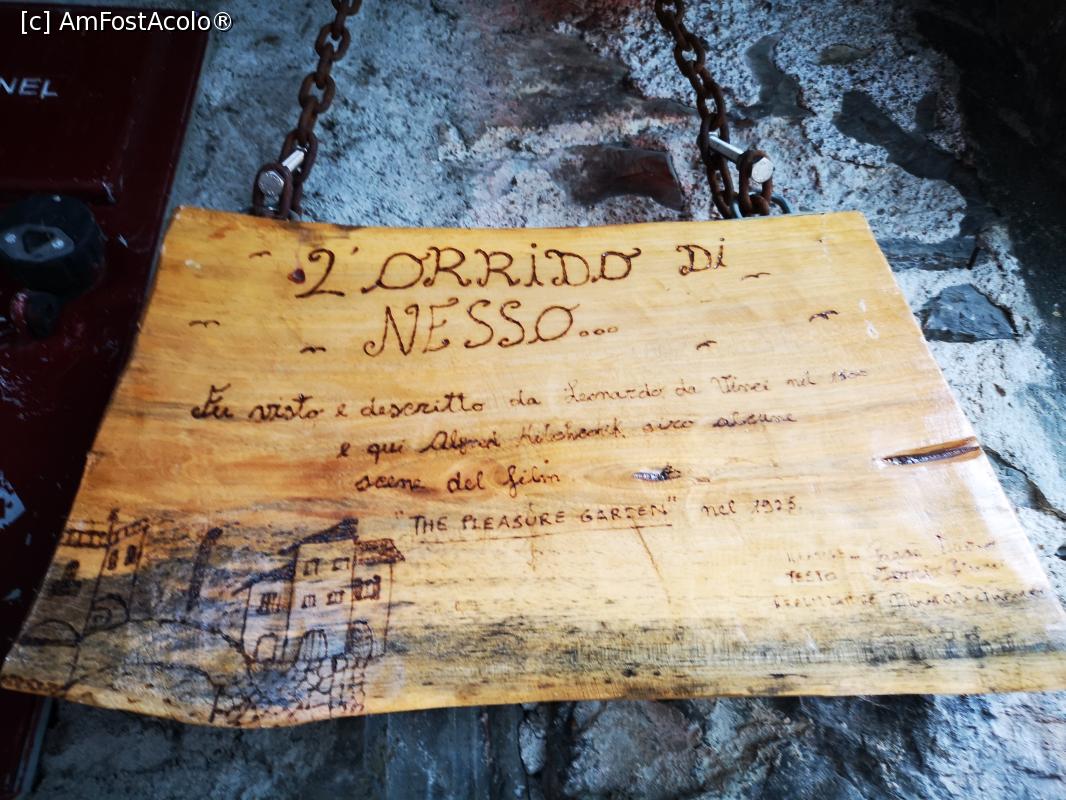 [c] AmFostAcolo®
NEL
L'ORRIDO DI
NESSO...
Fu visto e descritto da Leonardo da Vinci nel 1500
e qui Alfred Hitchcock giro alcune
scene del film
"THE PLEASURE GARTEN" nel 1925.
TESTO